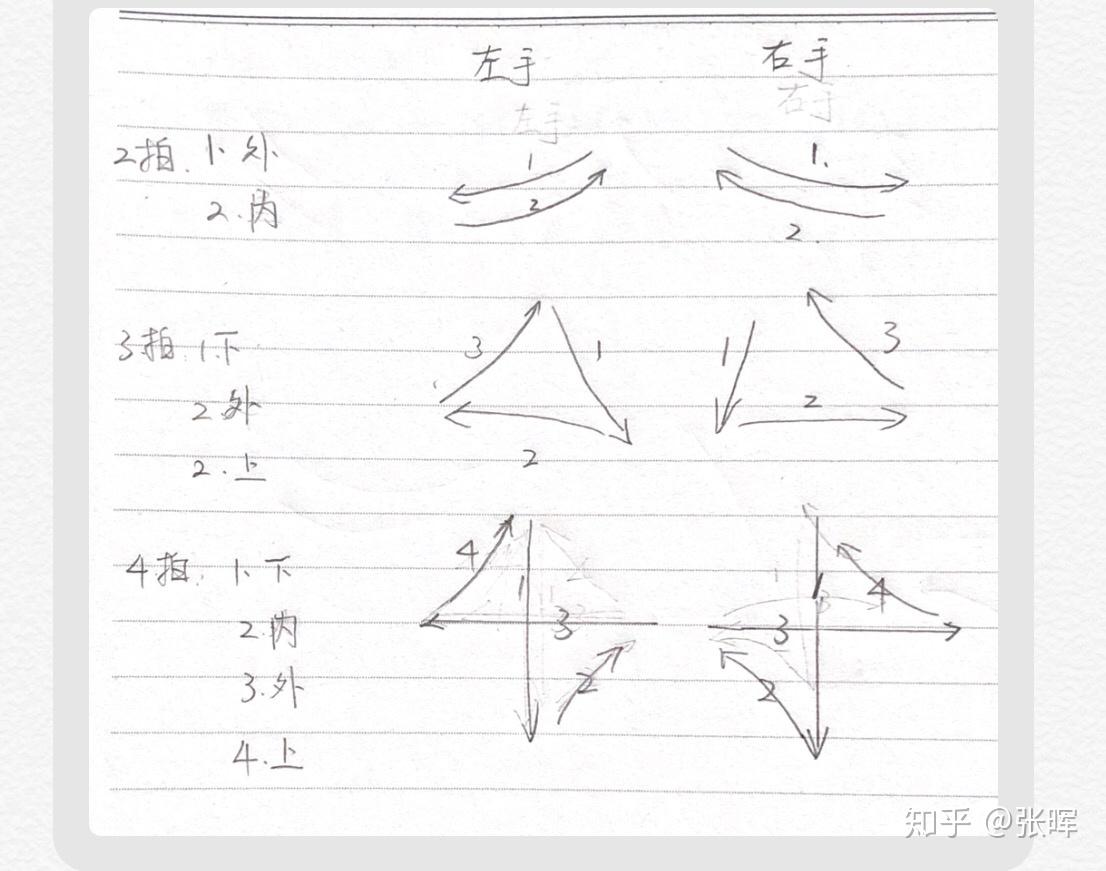 左手 右手
左手 右手
2拍. 1. 外
2. 内
1
2
1.
2.
3拍. 1. 下
2 外
2. 上
3 1
2
1 3
2
4拍. 1. 下
2. 内
3. 外
4. 上
4 1
3
2
1 4
3
2
知乎 @张晖